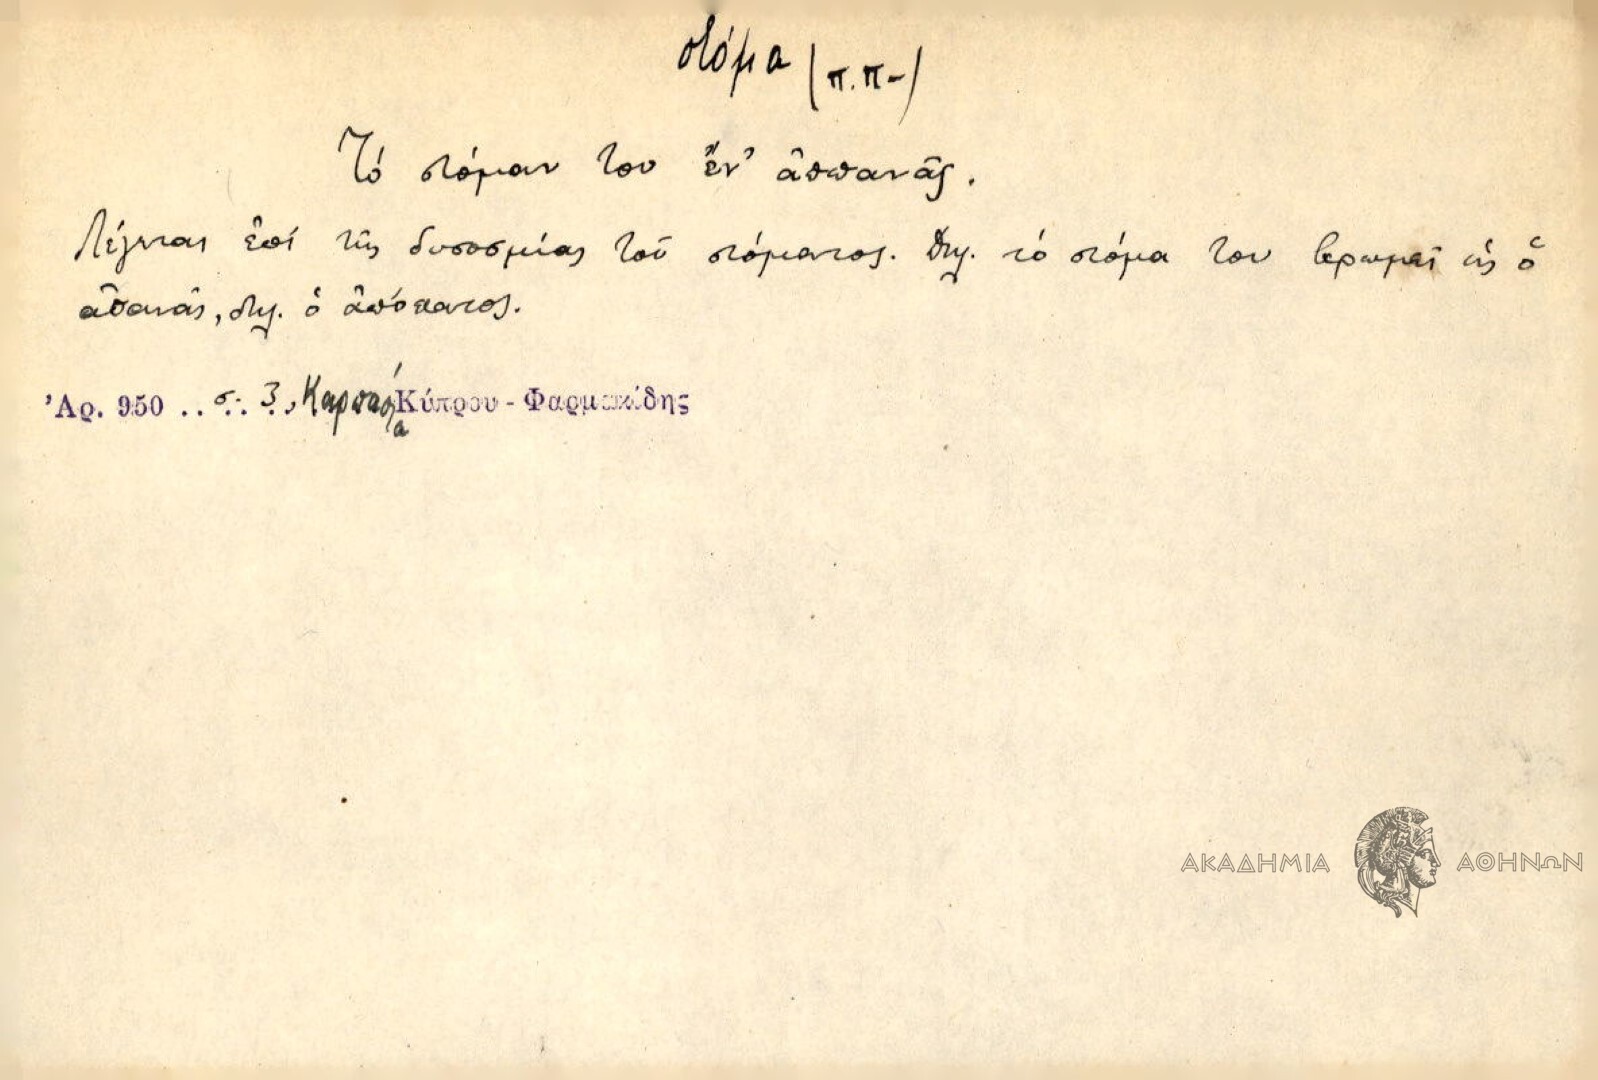 στόμα (π.π-)
Τό στόμαν του ἔν' ἀππανᾶς.
Λέγεται ἐπί τῆς δυσοσμίας τοῦ στόματος. Δηλ. τό στόμα του βρωμεῖ ὡς ὁ
ἀπανᾶς, δηλ. ὁ ἀπόπατος.
Ἀρ. 950 .. σ. 3, Καρπασία Κύπρου - Φαρμακίδης
ΑΚΑΔΗΜΙΑ ΑΘΗΝΩΝ